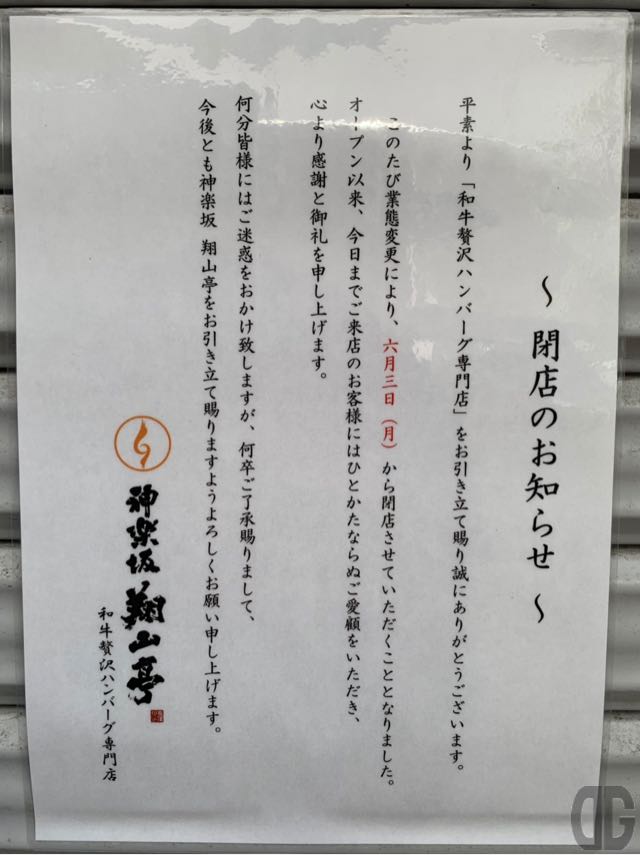 〜 閉店のお知らせ 〜
平素より「和牛贅沢ハンバーグ専門店」をお引き立て賜り誠にありがとうございます。
このたび業態変更により、六月三日（月）から閉店させていただくこととなりました。
オープン以来、今日までご来店のお客様にはひとかたならぬご愛顧をいただき、
心より感謝と御礼を申し上げます。
何分皆様にはご迷惑をおかけ致しますが、何卒ご了承賜りまして、
今後とも神楽坂 翔山亭をお引き立て賜りますようよろしくお願い申し上げます。
神楽坂 翔山亭
和牛贅沢ハンバーグ専門店
DG